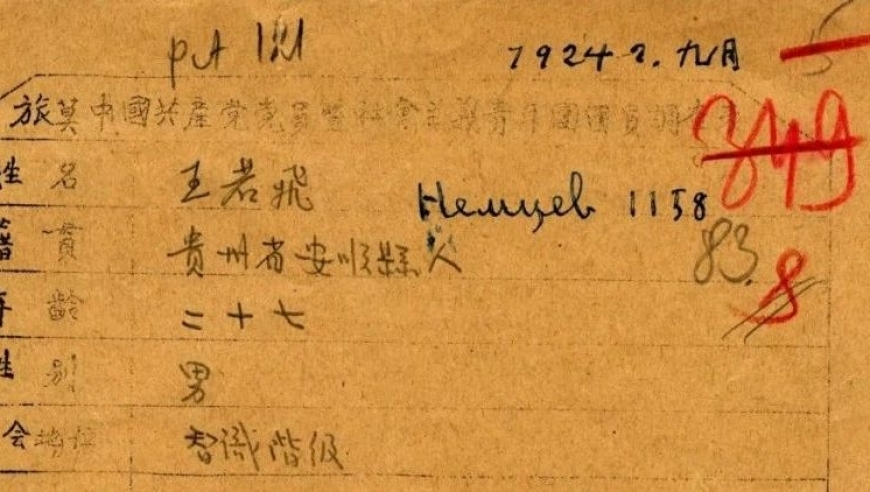 1924 2. 九月
旅莫中國共產党党員曁社會主義青年團團員調查
849
姓名 王若飛 Немцев 1158
籍貫 貴州省安順縣人 83. 8
年齡 二十七
性別 男
會地位 智識階級